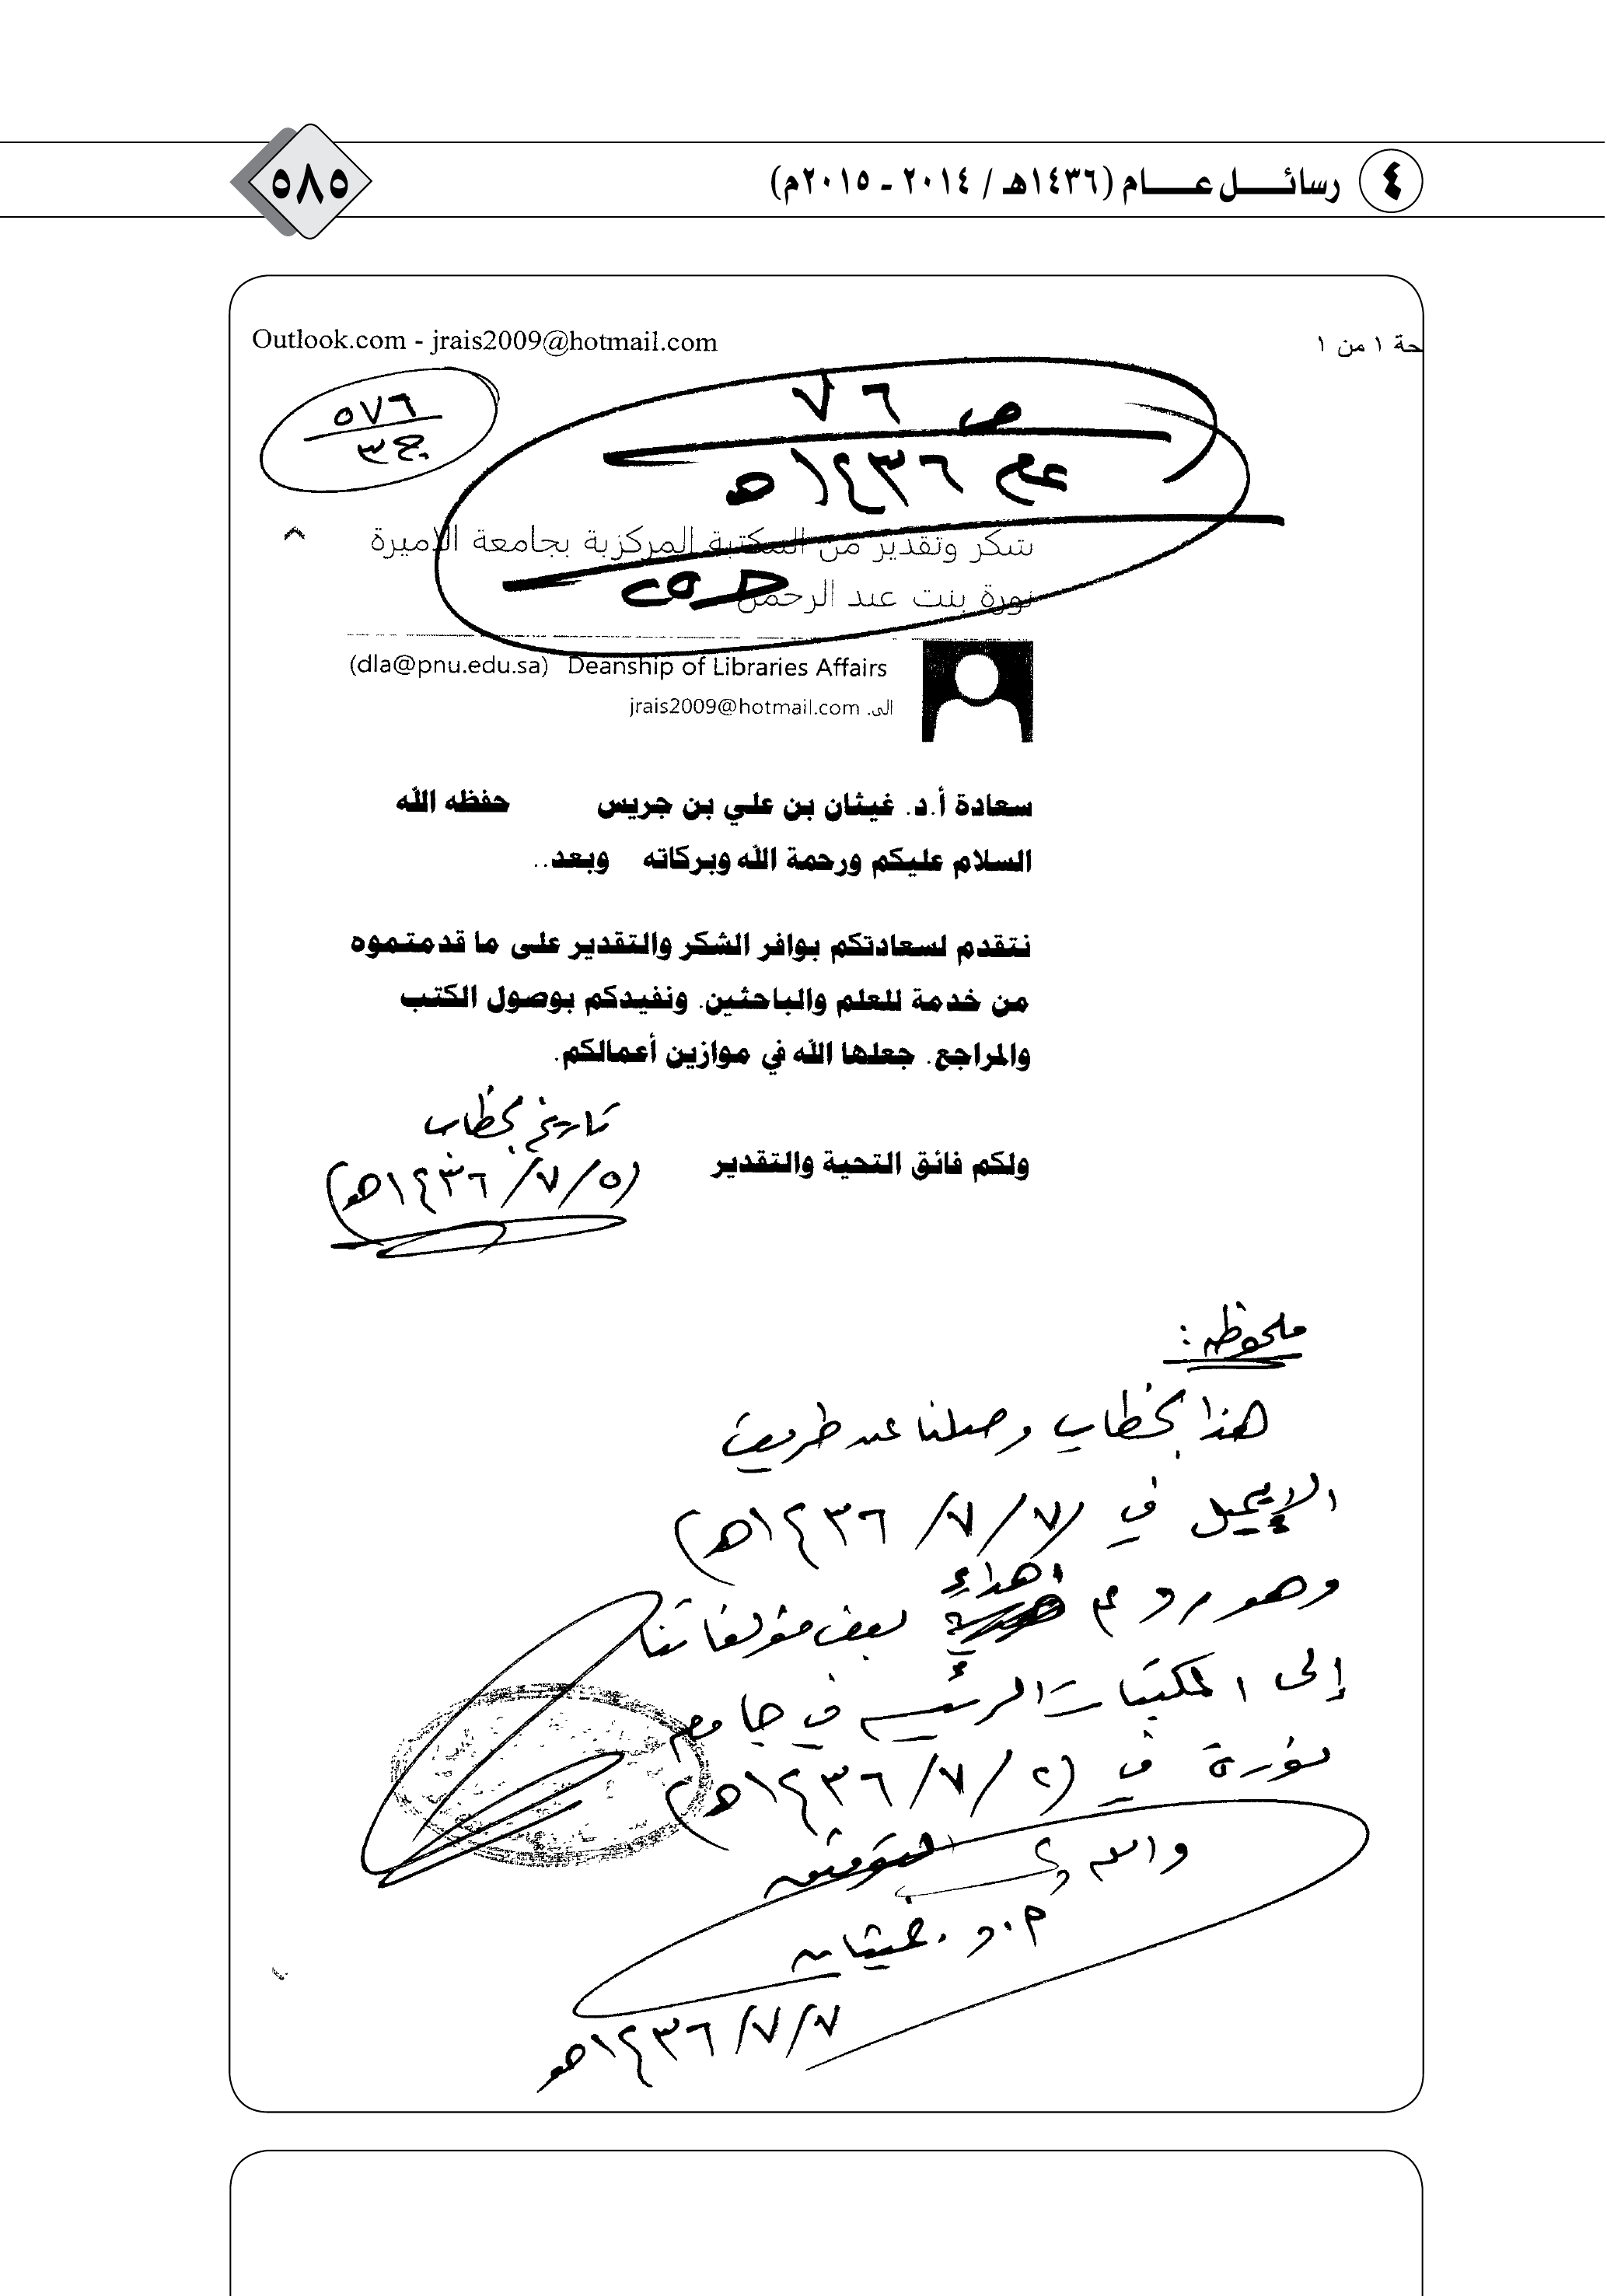 ٤ رسائل عام (١٤٣٦هـ / ٢٠١٤ - ٢٠١٥م)
٥٨٥
Outlook.com - jrais2009@hotmail.com
حة ١ من ١
٥٧٦
ج٣
ص ٦٧
عام ١٤٣٦هـ
شكر وتقدير من المكتبة المركزية بجامعة الأميرة
نورة بنت عبد الرحمن
Deanship of Libraries Affairs (dla@pnu.edu.sa)
الى. jrais2009@hotmail.com
سعادة أ.د. غيثان بن علي بن جريس حفظه الله
السلام عليكم ورحمة الله وبركاته وبعد..
نتقدم لسعادتكم بوافر الشكر والتقدير على ما قدمتموه
من خدمة للعلم والباحثين. ونفيدكم بوصول الكتب
والمراجع. جعلها الله في موازين أعمالكم.
ولكم فائق التحية والتقدير
تاريخ الخطاب
(٥/٧/١٤٣٦هـ)
ملحوظه :
هذا الخطاب وصلنا عن طريق
الإيميل في ٧/٧/١٤٣٦هـ)
وهو رد على إهداء بعض مؤلفاتنا
إلى المكتبات الرئيسة في جامعة
نورة في (٢/٧/١٤٣٦هـ)
والله ولي التوفيق
أ.د. غيثان
٧/٧/١٤٣٦هـ